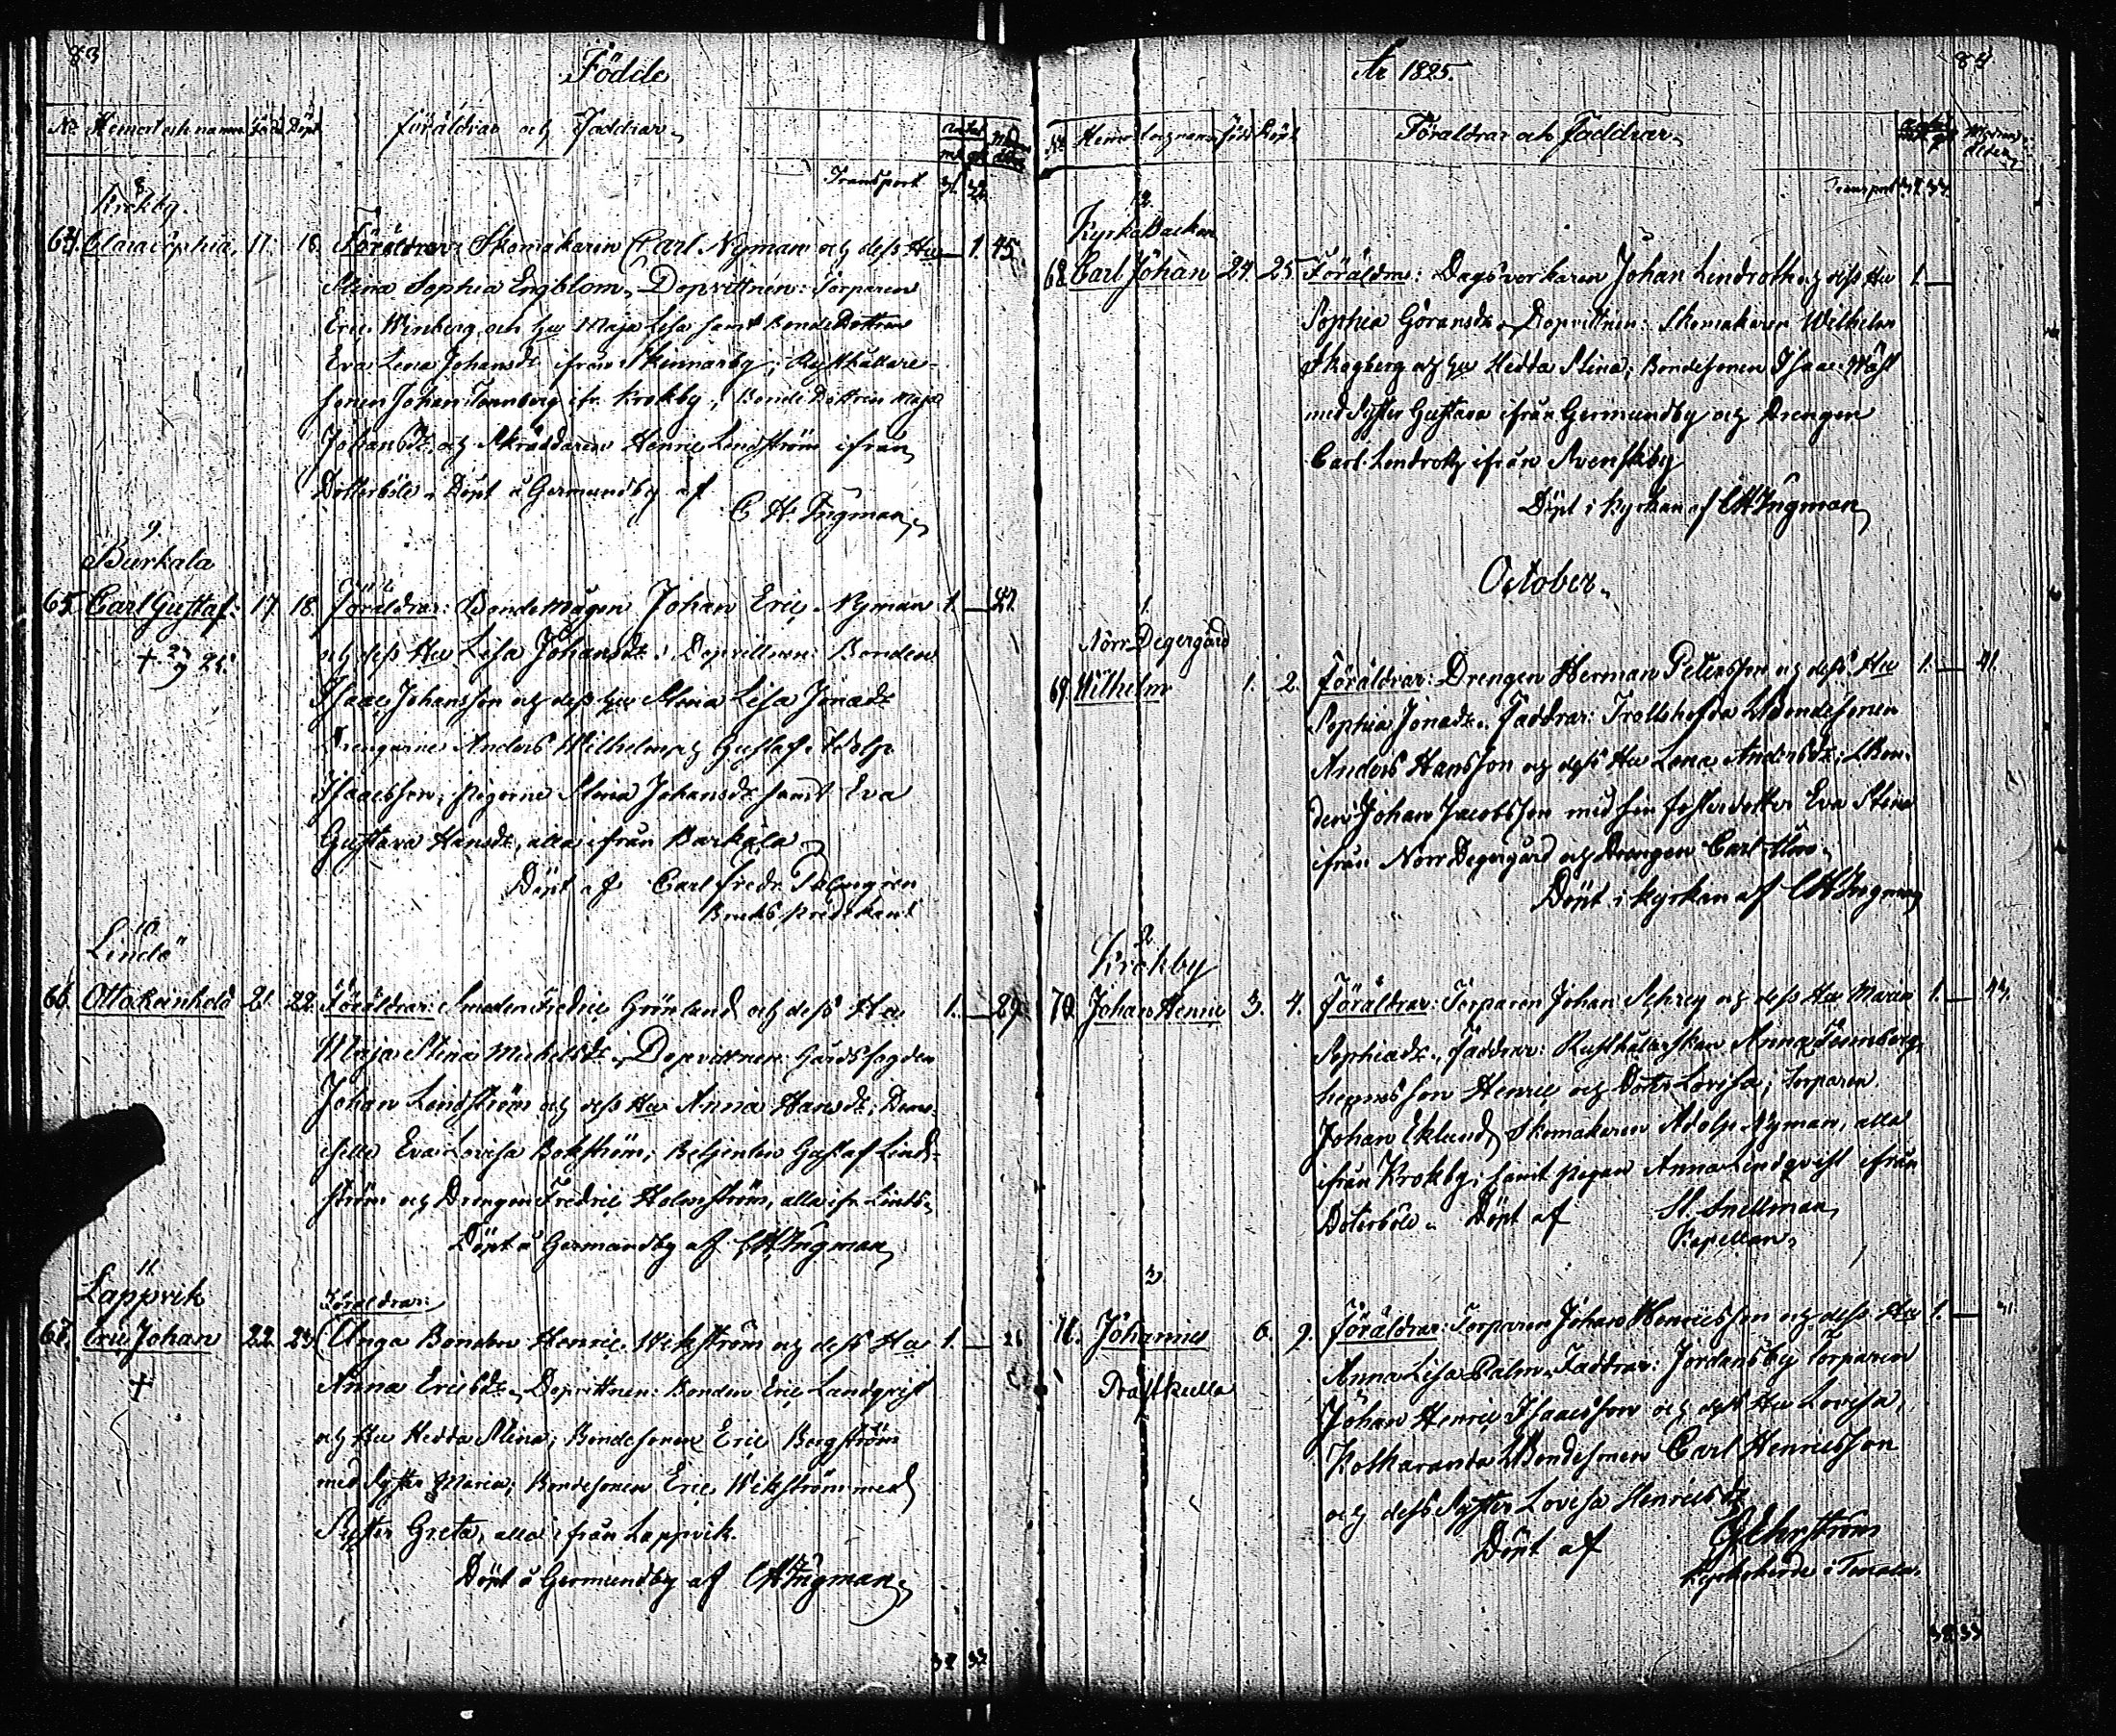 83
Födde
No Hemort och namn Född Döpt Föräldrar och Faddrar
Transport 31. 32.
8.
Krokby.
64. Clara Sophia. 17. 18. Föräldrar: Skomakaren Carl Nyman och dess Hu 1. 45.
Stina Sophia Engblom, Dopvittnen: Torparen
Eric Winberg och hu Maja Lisa samt Bonde Dottren
Eva Lena Johansdr ifrån Skinnarby; Rusthållare-
sonen Johan Tennberg ifr. Krokby; Bonde Dottren Maja
Johansdr och Skräddaren Henric Lindström ifrån
Dotterböle. Döpt å Germundby af
C H Ingman
9.
Burkala
65. Carl Gustaf. 17. 18. Föräldrar: Bondemågen Johan Eric Nyman 1. 27.
+ 27/9 25.
och dess Hu Lisa Johansdr. Dopvittnen: Bonden
Isaac Johansson och dess hu Stina Lisa Jonasdr
Drengarne Anders Wilhelm och Gustaf Adolph
Isaacsson, pigorne Stina Johansdr samt Eva
Gustava Hansdr, alla ifrån Barkala
Döpt af Carl Fredr. Palmgren
Bruks Predikant
10.
Lindö
66. Otto Reinhold 21. 22. Föräldrar: Smeden Fredric Grönlund och dess Hu 1. 29.
Maja Stina Michelsdr. Dopvittnen: Gårdsfogden
Johan Lindström och dess Hu Anna Hansdr; Dem-
iselle Eva Lovisa Bokström; Betjenten Gustaf Lind-
ström och Drengen Fredric Holmström, alla ifr. Lindö.
Döpt å Germundby af C H Ingman
11.
Lappvik
Föräldrar:
67. Eric Johan 22. 23. Unga Bonden Henric Wikström och dess Hu 1. 26
+
Anna Ericsdr. Dopvittnen: Bonden Eric Lundqvist
och Hu Hedda Stina; Bondesonen Eric Bergström
med Syster Maria; Bondesonen Eric Wikström med
Syster Greta, alla ifrån Lappvik.
Döpt å Germundby af C H Ingman
32 33
84
År 1825.
No Hemort och namn Född Döpt Föräldrar och Faddrar
Transport 32. 33.
12.
Kyrkobacken
68. Carl Johan 24. 25. Föräldrar: Dagsverkaren Johan Lindroth och dess Hu 1.
Sophia Göransdr. Dopvittnen: Skomakaren Wilhelm
Skogberg och hu Hedda Stina; Bondesonen Isaac Wäst
med Syster Gustava ifrån Germundby och Drengen
Carl Lindroth ifrån Svenskby
Döpt i Kyrkan af C H Ingman
October.
1.
Norr Degergård
69. Wilhelm 1. 2. Föräldrar: Drengen Herman Petersson och dess Hu 1. 41.
Sophia Jonasdr. Faddrar: Trollshofda Bondesonen
Anders Hansson och dess Hu Lena Andersdr; Bon-
den Johan Jacobsson med sin fosterdotter Eva Stina
ifrån Norr Degergård och Drengen Carl
Döpt i kyrkan af C H Ingman
2.
Krokby
70. Johan Henric 3. 4. Föräldrar: Torparen Johan Schrey och dess Hu Maria 1. 43.
Sophiadr. Faddrar: Rusthållarskan Anna Tennberg
hennes son Henric och Doter Lovisa; Torparen
Johan Eklund, Skomakaren Adolph Nyman, alla
ifrån Krokby; samt pigan Anna Lindqvist ifrån
Doterböle. Döpt af H. Snellman
Kapellan.
3.
71. Johannes 6. 9. Föräldrar: Torparen Johan Henricsson och dess Hu 1.
Prästkulla
Anna Lisa Palm. Faddrar: Jordansby Torparen
Johan Henric Isaacsson och dess Hu Lovisa,
Bondesonen Carl Henricsson
och dess Syster Lovisa Henricsdr
Döpt af Ehrström
Kyrkoherde i Tenala.
32 33